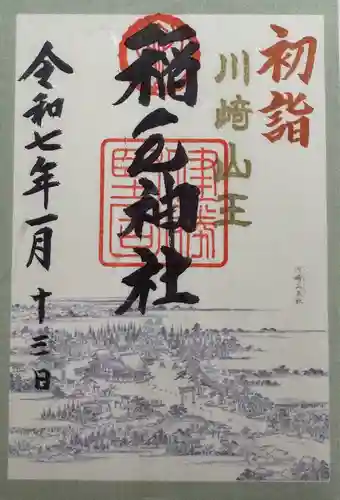 初詣
川崎山王
稲毛神社
令和七年一月十三日